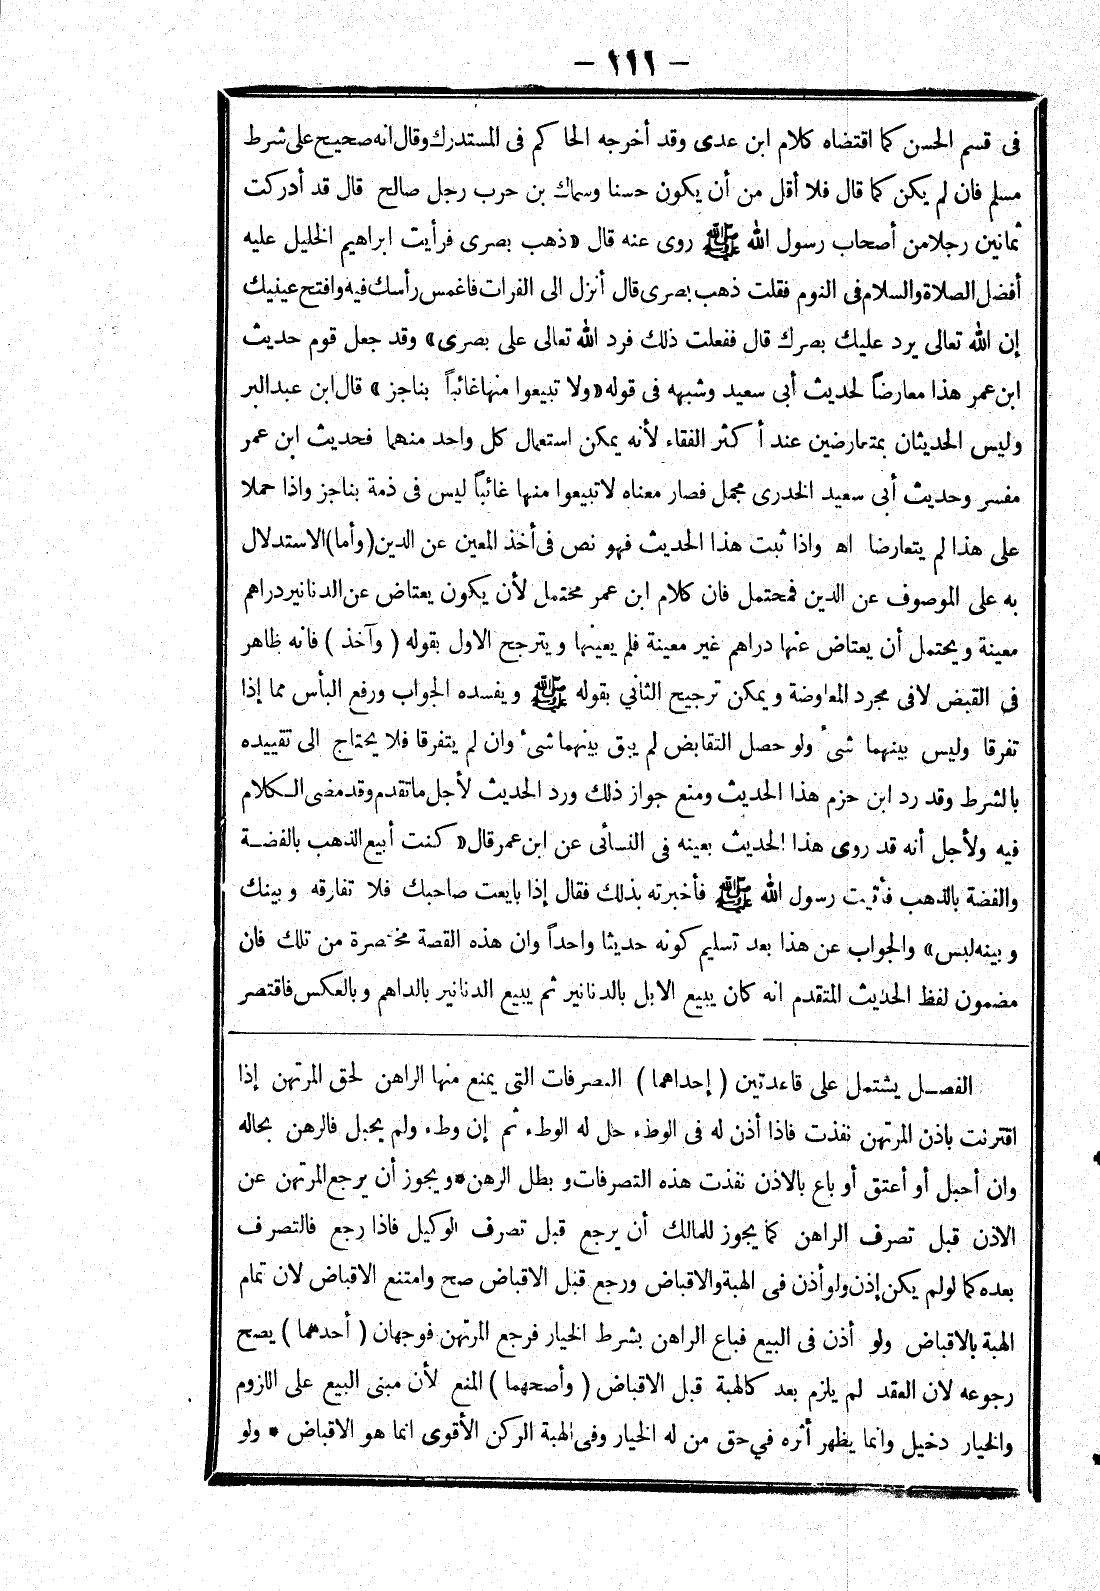 — ١١١ —
فى قسم الحسن كما اقتضاه كلام ابن عدى وقد أخرجه الحاكم فى المستدرك وقال انه صحيح على شرط
مسلم فان لم يكن كما قال فلا أقل من أن يكون حسنا وسماك بن حرب رجل صالح قال قد أدركت
ثمانين رجلا من أصحاب رسول الله ﷺ روى عنه قال «ذهب بصرى فرأيت ابراهيم الخليل عليه
أفضل الصلاة والسلام فى النوم فقلت ذهب بصرى قال أنزل الى الفرات فاغمس رأسك فيه وافتح عينيك
إن الله تعالى يرد عليك بصرك قال ففعلت ذلك فرد الله تعالى على بصرى» وقد جعل قوم حديث
ابن عمر هذا معارضاً لحديث أبى سعيد وشبهه فى قوله «ولا تبيعوا منها غائباً بناجز» قال ابن عبد البر
وليس الحديثان بمتعارضين عند أكثر الفقاء لأنه يمكن استعمال كل واحد منهما فحديث ابن عمر
مفسر وحديث أبى سعيد الخدرى مجمل فصار معناه لاتبيعوا منها غائباً ليس فى ذمة بناجز واذا حملا
على هذا لم يتعارضا اه واذا ثبت هذا الحديث فهو نص فى أخذ المعين عن الدين (وأما) الاستدلال
به على الموصوف عن الدين فمحتمل فان كلام ابن عمر محتمل لأن يكون يعتاض عن الدنانير دراهم
معينة ويحتمل أن يعتاض عنها دراهم غير معينة فلم يعينها ويترجح الاول بقوله (وآخذ) فانه ظاهر
فى القبض لافى مجرد المعاوضة ويمكن ترجيح الثاني بقوله ﷺ ويفسده الجواب ورفع البأس مما إذا
تفرقا وليس بينهما شىء ولو حصل التقابض لم يبق بينهما شىء وان لم يتفرقا فلا يحتاج الى تقييده
بالشرط وقد رد ابن حزم هذا الحديث ومنع جواز ذلك ورد الحديث لأجل ماتقدم وقد مضى الكلام
فيه ولأجل أنه قد روى هذا الحديث بعينه فى النسائى عن ابن عمر قال «كنت أبيع الذهب بالفضة
والفضة بالذهب فأتيت رسول الله ﷺ فأخبرته بذلك فقال إذا بايعت صاحبك فلا تفارقه وبينك
وبينه لبس» والجواب عن هذا بعد تسليم كونه حديثا واحداً وان هذه القصة مختصرة من تلك فان
مضمون لفظ الحديث المتقدم انه كان يبيع الابل بالدنانير ثم يبيع الدنانير بالداهم وبالعكس فاقتصر
الفصل يشتمل على قاعدتين (إحداهما) التصرفات التى يمنع منها الراهن لحق المرتهن إذا
اقترنت باذن المرتهن نفذت فاذا أذن له فى الوطء حل له الوطء ثم إن وطء ولم يحبل فالرهن بحاله
وان أحبل أو أعتق أو باع بالاذن نفذت هذه التصرفات وبطل الرهن * ويجوز أن يرجع المرتهن عن
الاذن قبل تصرف الراهن كما يجوز للمالك أن يرجع قبل تصرف الوكيل فاذا رجع فالتصرف
بعده كما لو لم يكن إذن ولو أذن فى الهبة والاقباض ورجع قبل الاقباض صح وامتنع الاقباض لان تمام
الهبة بالاقباض ولو أذن فى البيع فباع الراهن بشرط الخيار فرجع المرتهن فوجهان (أحدهما) يصح
رجوعه لان العقد لم يلزم بعد كالهبة قبل الاقباض (وأصحهما) المنع لأن مبنى البيع على اللزوم
والخيار دخيل وانما يظهر أثره في حق من له الخيار وفى الهبة الركن الأقوى انما هو الاقباض * ولو